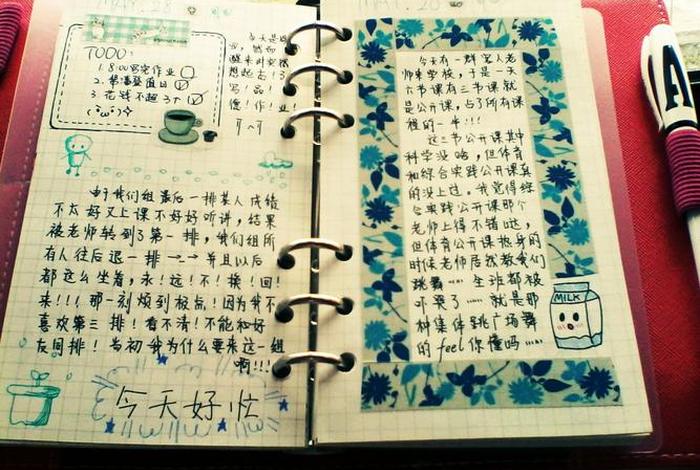 TODO:
1. 8:00写完作业
2. 早晨值日
3. 花钱不超3个
今天是
醒来时突然
想起古!3
写!品!
德!作!业!
由于我们组最后一排某人成绩
不太好又上课不好好听讲,结果
被老师转到了第一排,我们组所
有人往后退一排→_→并且以后
都这么坐着,永!远!不!换!回!
来!!!那一刻烦到极点!因为我不
喜欢第三排!看不清!不能和好
友同排!当初我为什么要来这一组
啊!!!
今天好忙
今天有一群客人老
师来学校,于是一天
六节课有三节课就
是公开课,占了所有课
程的一半!!!
这三节公开课其中
科学没啥,但体育
和综合实践公开课真
的没上过。我觉得综
合实践公开课那个
老师上得不错哒,
但体育公开课热身的
时候老师居然教我们
跳舞……全班都被
吓哭了……就是那
种集体跳广场舞
的feel你懂吗……
MILK
A